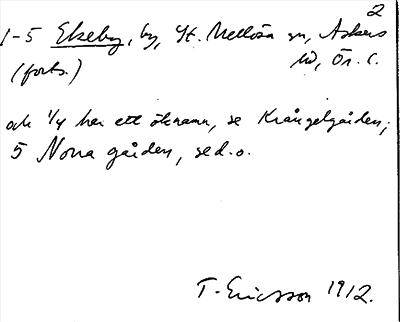 2
1-5 Ekeby, by, St. Mellösa sn, Askers
(forts.) hd, Ör. l.
och 1/4 har ett öknamn, se Krångelgården;
5 Norra gården, se d.o.
T. Ericsson 1912.